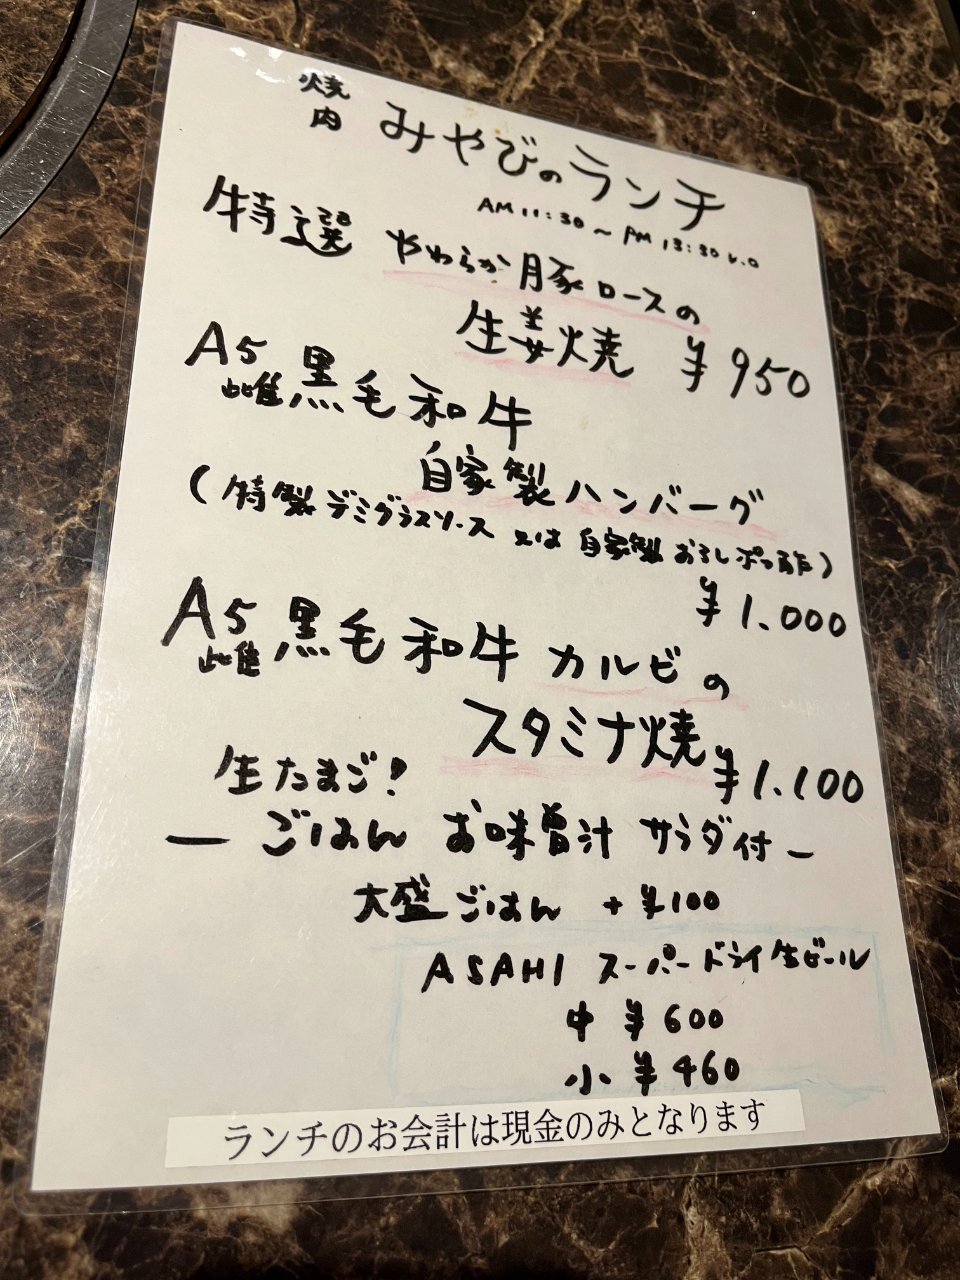 焼肉 みやびのランチ
AM 11:30〜PM 13:30 L.O
特選 やわらか豚ロースの
生姜焼 ¥950
A5雌黒毛和牛
自家製ハンバーグ
(特製デミグラスソース 又は 自家製おろしポン酢)
¥1.000
A5雌黒毛和牛カルビの
スタミナ焼 ¥1.100
生たまご!
ー ごはん お味曽汁 サラダ付 ー
大盛ごはん +¥100
ASAHI スーパードライ生ビール
中 ¥600
小 ¥460
ランチのお会計は現金のみとなります